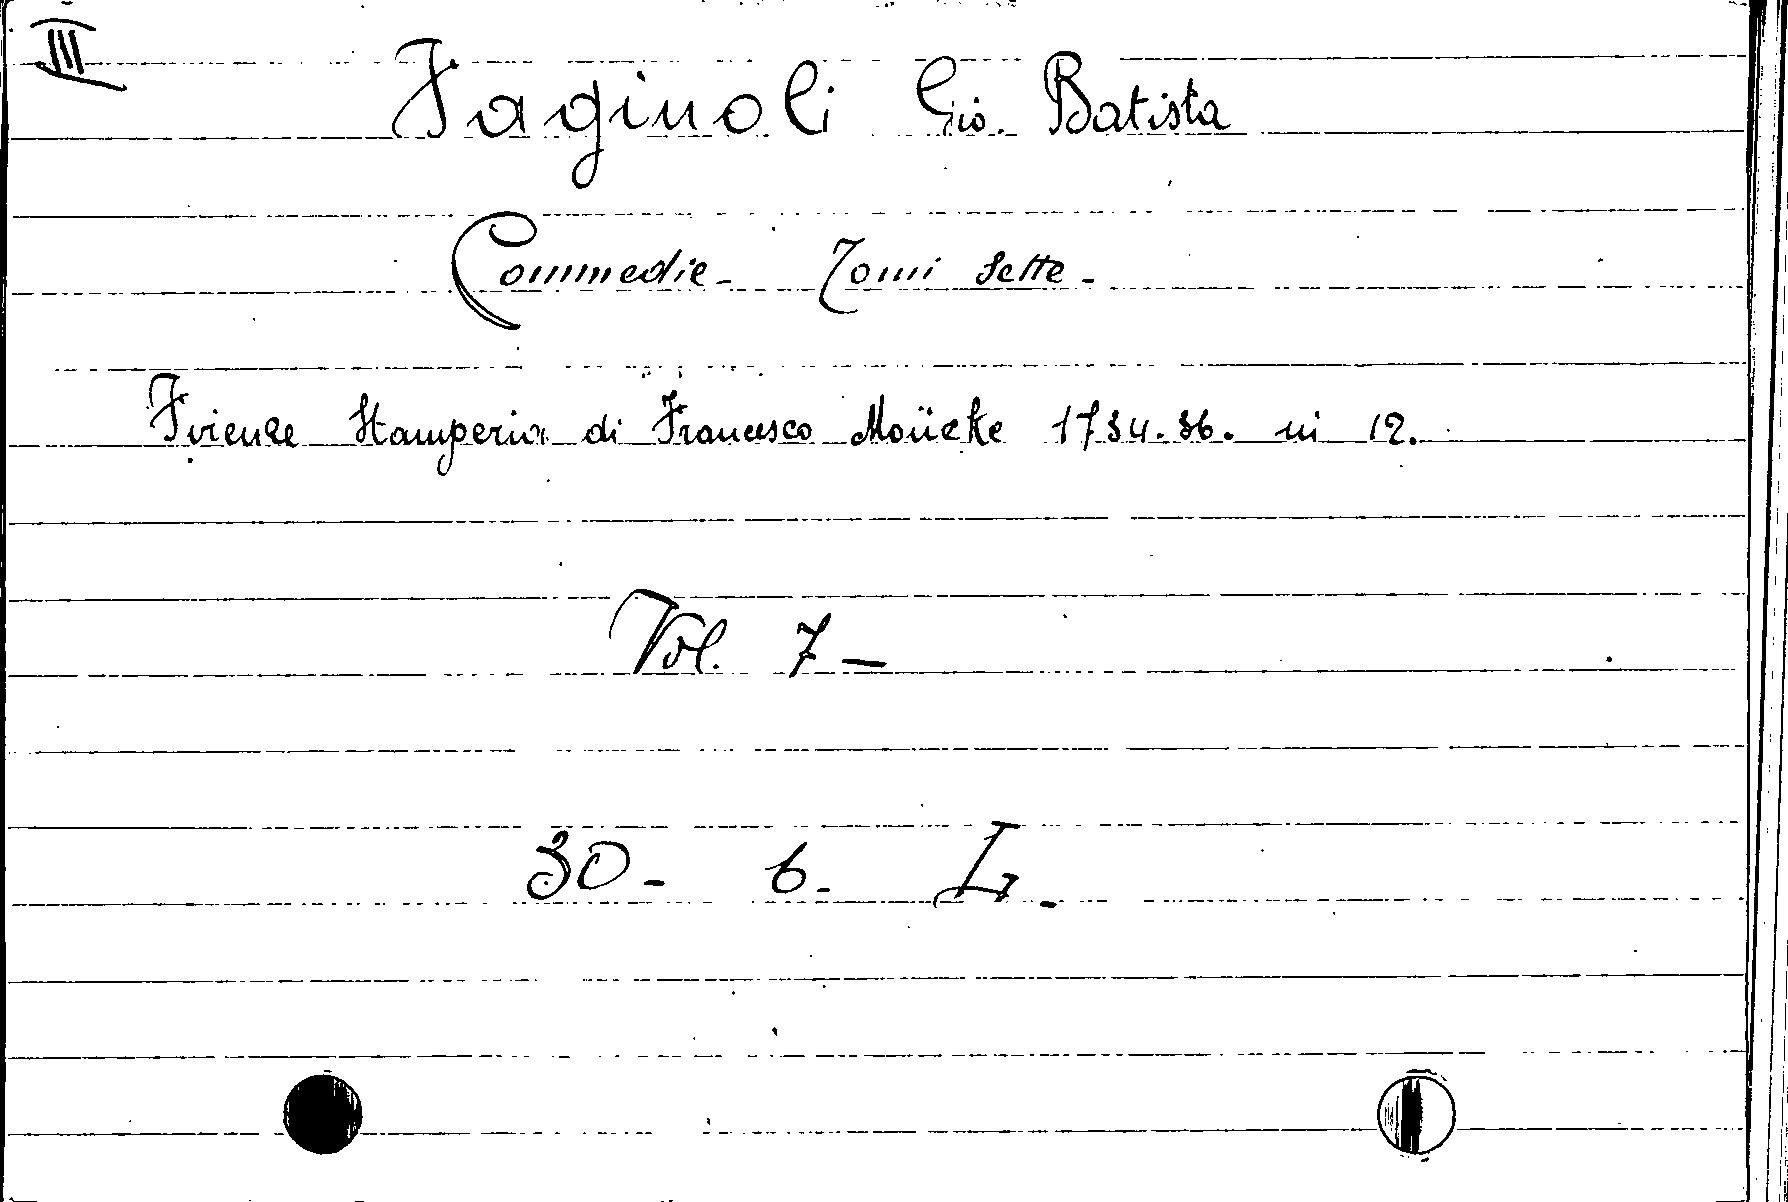 III
Faginoli Gio. Batista
Commedie - Tomi sette -
Firenze Stamperia di Francesco Moücke 1734.36. in 12.
Vol. 7 -
30 - 6 - L -